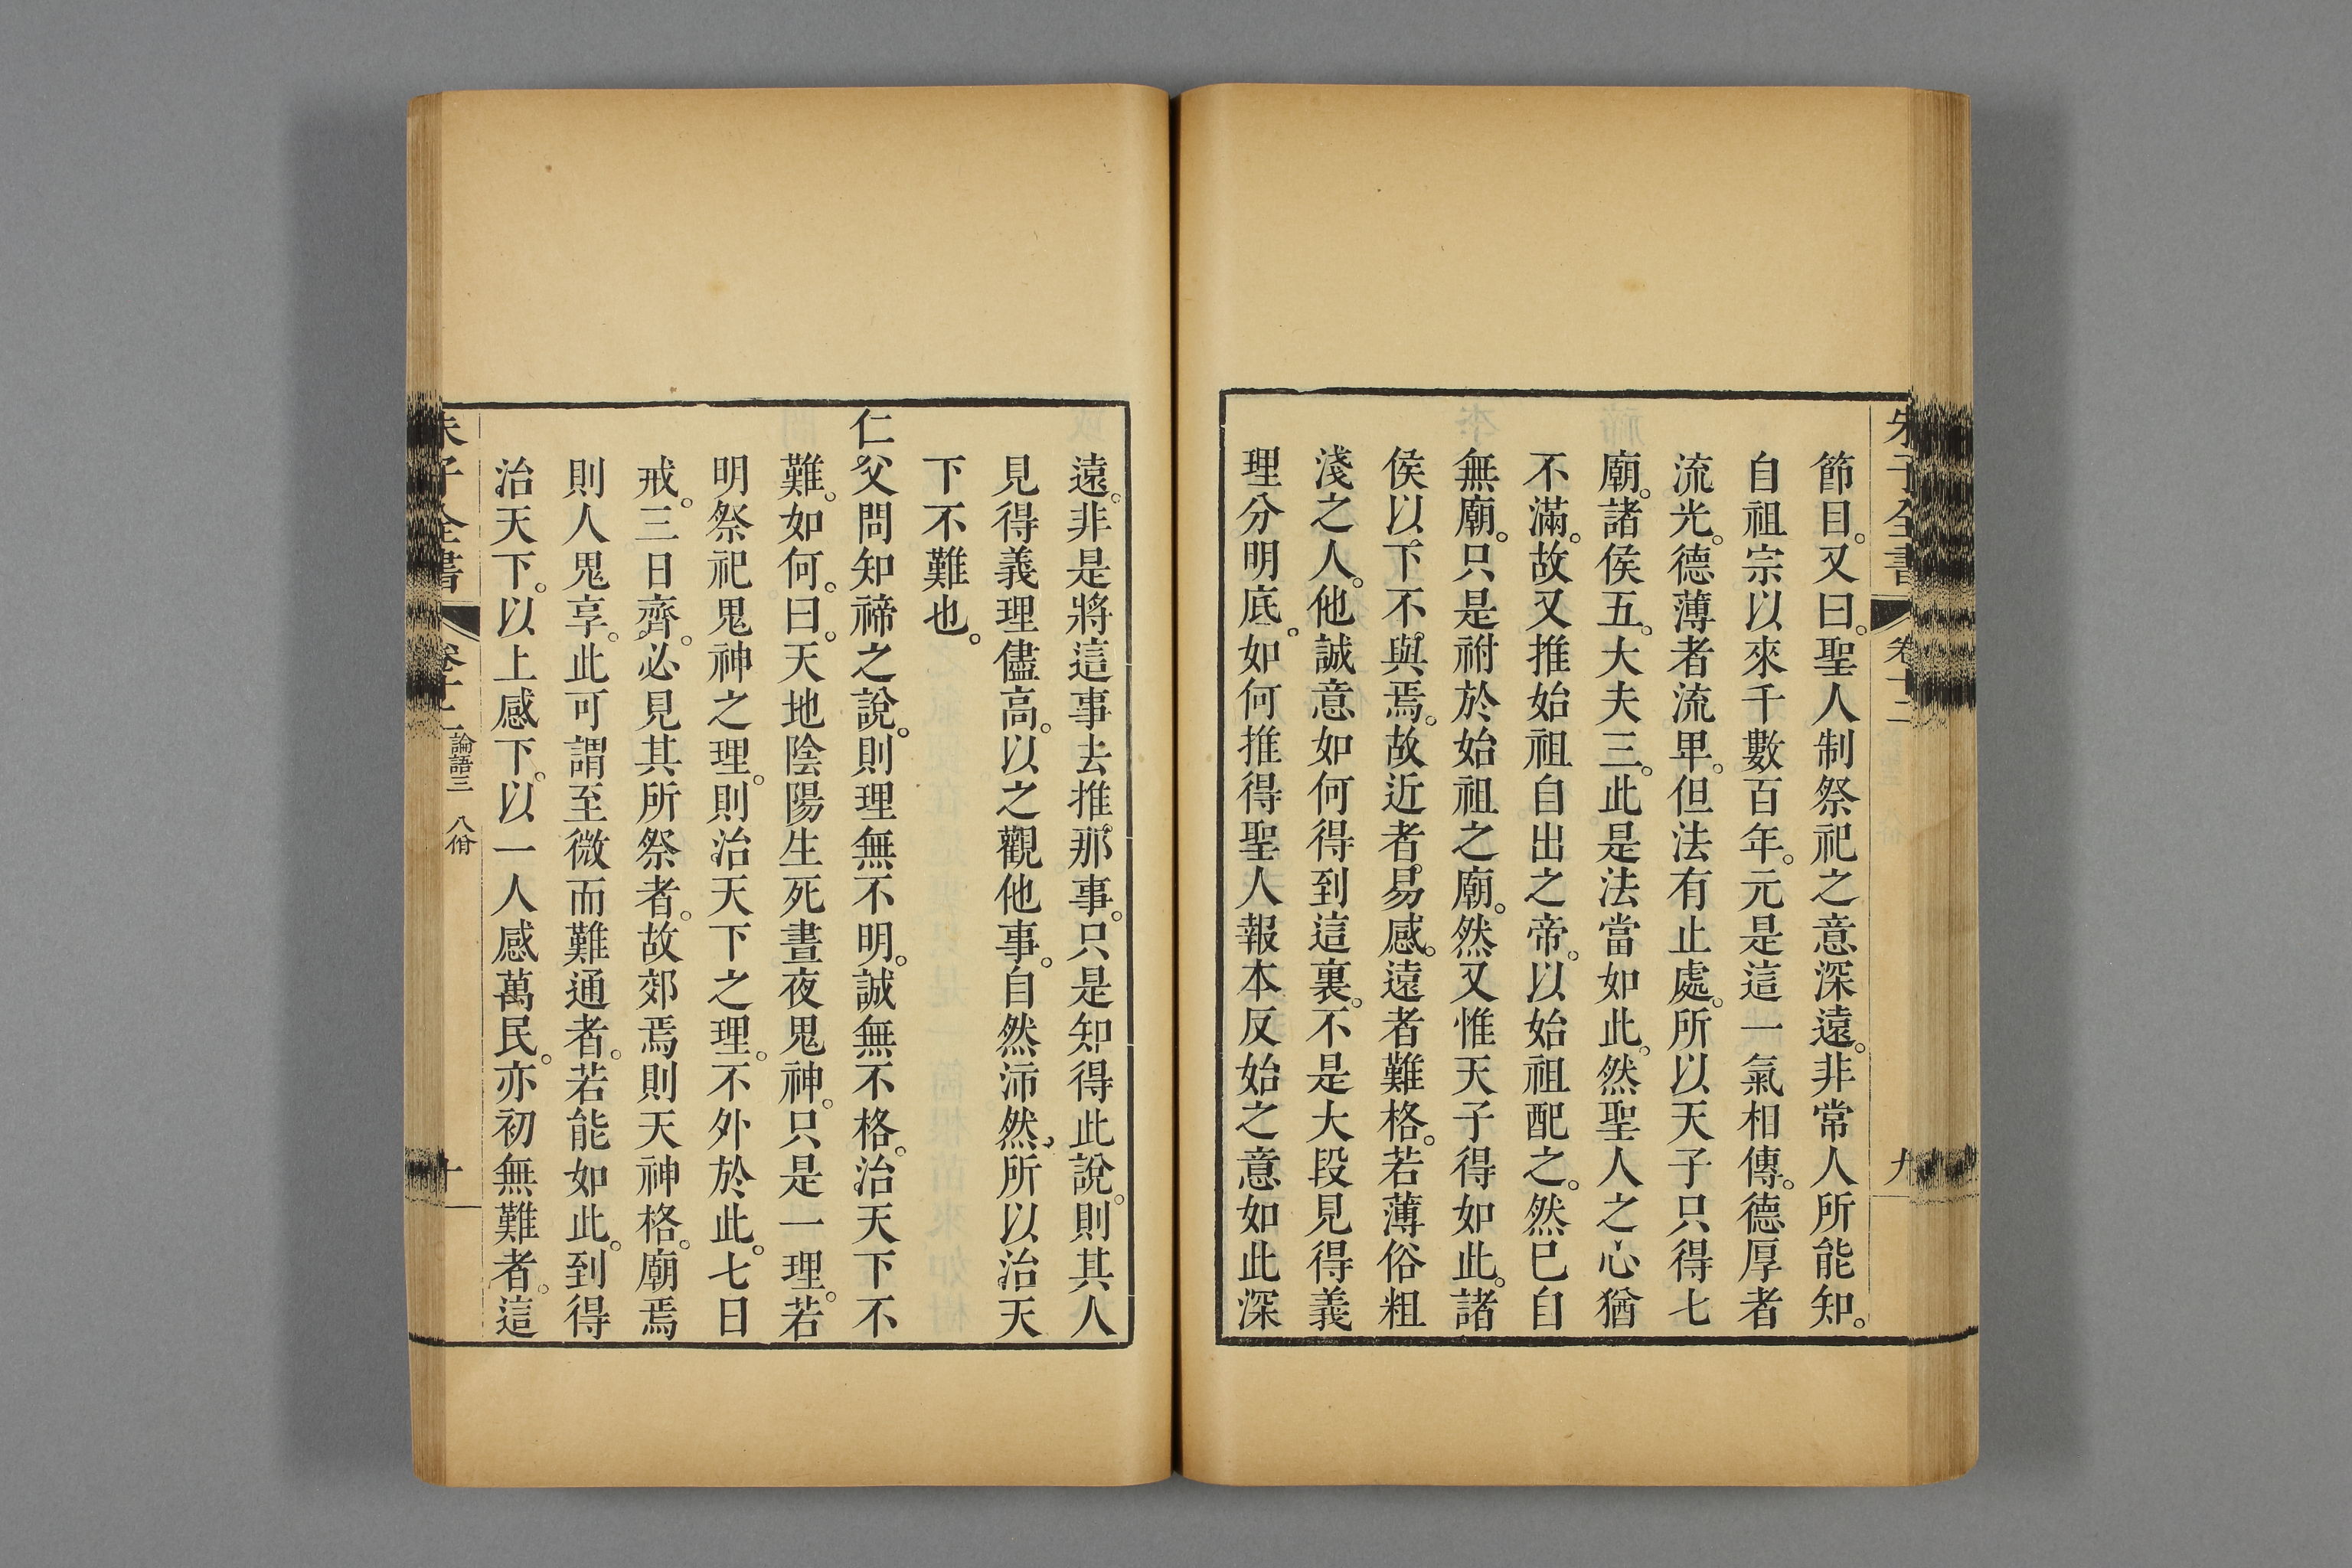 朱子全書 卷十二 九
節目。又曰。聖人制祭祀之意深遠。非常人所能知。
自祖宗以來千數百年。元是這一氣相傳。德厚者
流光。德薄者流卑。但法有止處。所以天子只得七
廟。諸侯五。大夫三。此是法當如此。然聖人之心猶
不滿。故又推始祖自出之帝。以始祖配之。然已自
無廟。只是祔於始祖之廟。然又惟天子得如此。諸
侯以下不與焉。故近者易感。遠者難格。若薄俗粗
淺之人。他誠意如何得到這裏。不是大段見得義
理分明底。如何推得聖人報本反始之意如此深
遠。非是將這事去推那事。只是知得此說。則其人
見得義理儘高。以之觀他事。自然沛然。所以治天
下不難也。
仁父問知禘之說。則理無不明。誠無不格。治天下不
難。如何。曰。天地陰陽生死晝夜鬼神。只是一理。若
明祭祀鬼神之理。則治天下之理。不外於此。七日
戒。三日齊。必見其所祭者。故郊焉則天神格。廟焉
則人鬼享。此可謂至微而難通者。若能如此。到得
治天下。以上感下。以一人感萬民。亦初無難者。這
朱子全書 卷十二 論語三 八佾 十